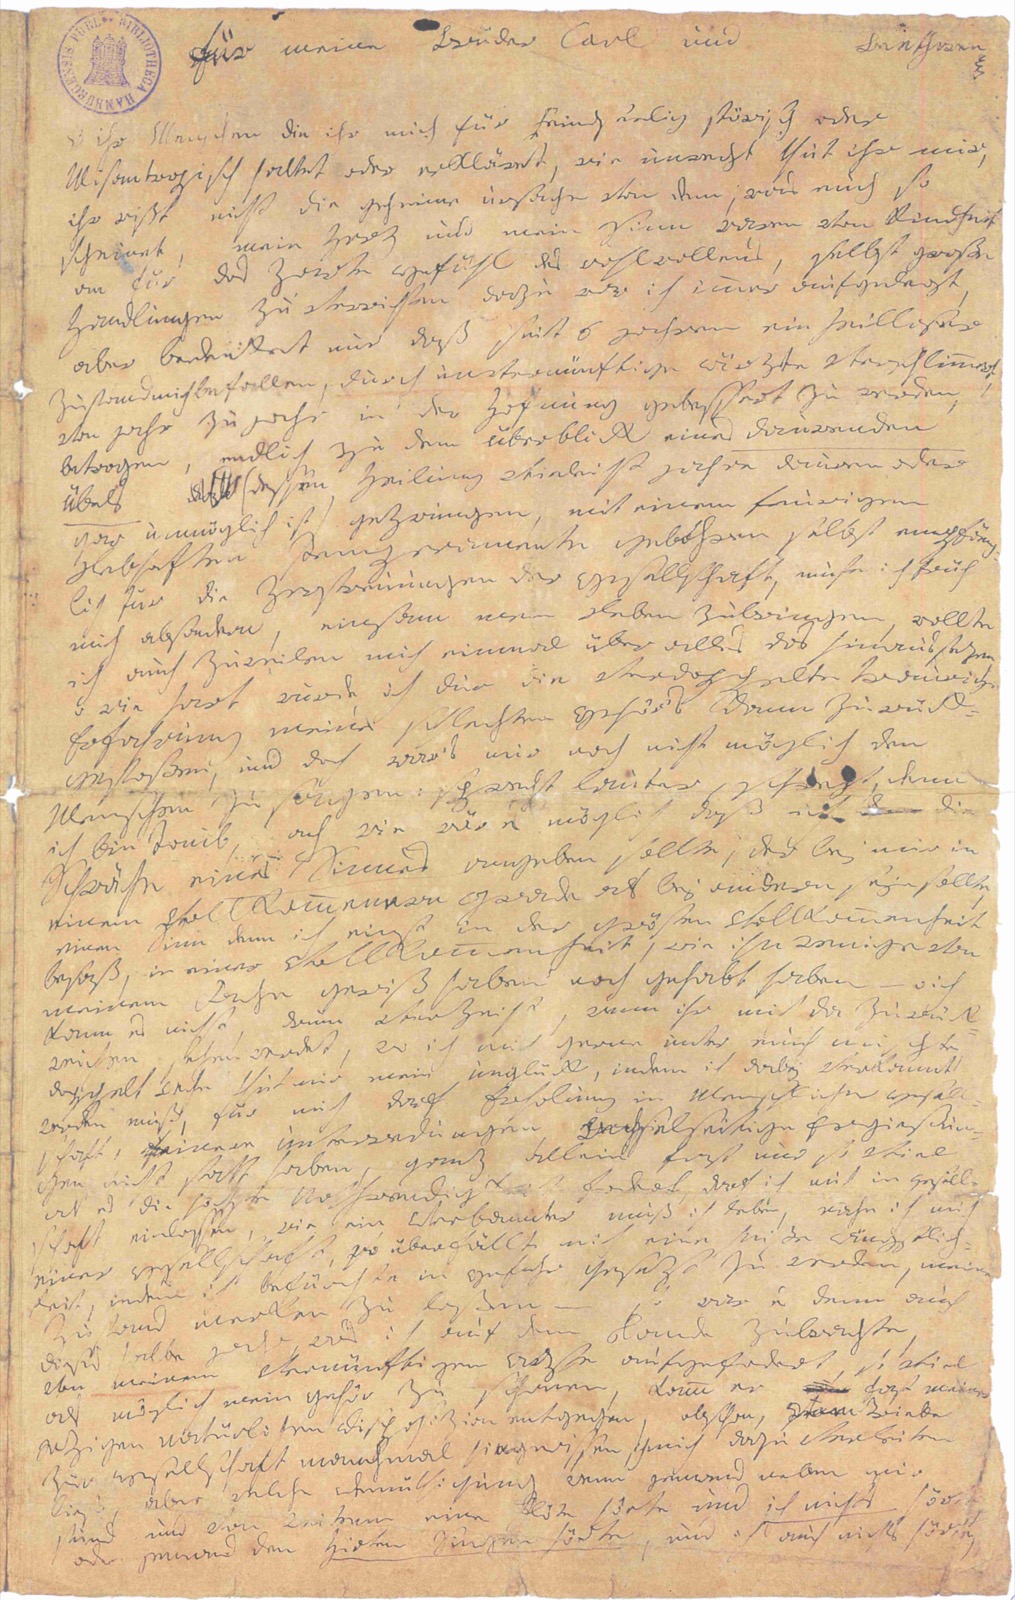 HAMBURGENSIS PUBL. BIBLIOTHECA
für meine Brüder Carl und Beethowen
o ihr Menschen die ihr mich für Feindseelig störisch oder
Misantropisch haltet oder erkläret, wie unrecht thut ihr mir,
ihr wißt nicht die geheime ursache von dem, was euch so
scheinet, mein Herz und mein Sinn waren von Kindheit
an für das Zarte Gefühl des wohlwollens, selbst große
Handlungen zu verrichten dazu war ich imer aufgelegt,
aber bedenket nur daß seit 6 jahren ein heilloser
Zustand mich befallen, durch unvernünftige ärzte verschlimert,
von jahr zu jahr in der Hofnung gebessert zu werden,
betrogen, endlich zu dem überblick eines daurenden
Übels (dessen Heilung vieleicht jahre dauren oder
gar unmöglich ist) gezwungen, mit einem feurigen
Lebhaften Temperamente gebohren selbst empfäng-
lich für die Zerstreuungen der Gesellschaft, muste ich früh
mich absondern, einsam mein Leben zubringen, wollte
ich auch zuweilen mich einmal über alles das hinaussezen,
o wie hart wurde ich dur die verdoppelte traurige
Erfahrung meines schlechten Gehör's dann zurück-
gestoßen, und doch war's mir noch nicht möglich den
Menschen zu sagen: sprecht lauter, schrejt, denn
ich bin taub, ach wie wär es möglich daß ich die
Schwäche eines Sinnes angeben sollte, der bej mir in
einem vollkomenern Grade als bej andern sein sollte,
einen Sinn denn ich einst in der grösten Vollkomenheit
besaß, in einer Vollkomenheit, wie ihn wenige von
meinem Fache gewiß haben noch gehabt haben – o ich
kann es nicht, drum verzeiht, wenn ihr mich da zurück-
weichen sehen werdet, wo ich mich gerne unter euch mischte,
doppelt Wehe thut mir mein unglück, indem ich dabej verkannt
werden muß, für mich darf Erholung in Menschlicher Gesell-
schaft, feinere unterredungen, Wechselseitige Ergießun-
gen nicht statt haben, ganz allein fast nur so viel
als es die höchste Nothwendigkeit fodert, darf ich mich in gesell-
schaft einlassen, wie ein Verbannter muß ich leben, nahe ich mich
einer Gesellschaft, so überfällt mich eine heiße ängstlich-
keit, indem ich befürchte in Gefahr gesezt zu werden, meinen
Zustand merken zu laßen – so war es denn auch
dieses halbe jahr, was ich auf dem Lande zubrachte,
von meinem vernünftigen Arzte aufgefodert, so viel
als möglich mein Gehör zu schonen, kamm er fast meiner
jezigen natürlichen Disposizion entgegen, obschon, Vom Triebe
zur Gesellschaft manchmal hingerissen, ich mich dazu verleiten
ließ, aber welche Demüthigung wenn jemand neben mir
stund und von weitem eine flöte hörte und ich nichts hörte
oder jemand den Hirten Singen hörte, und ich auch nichts hörte,